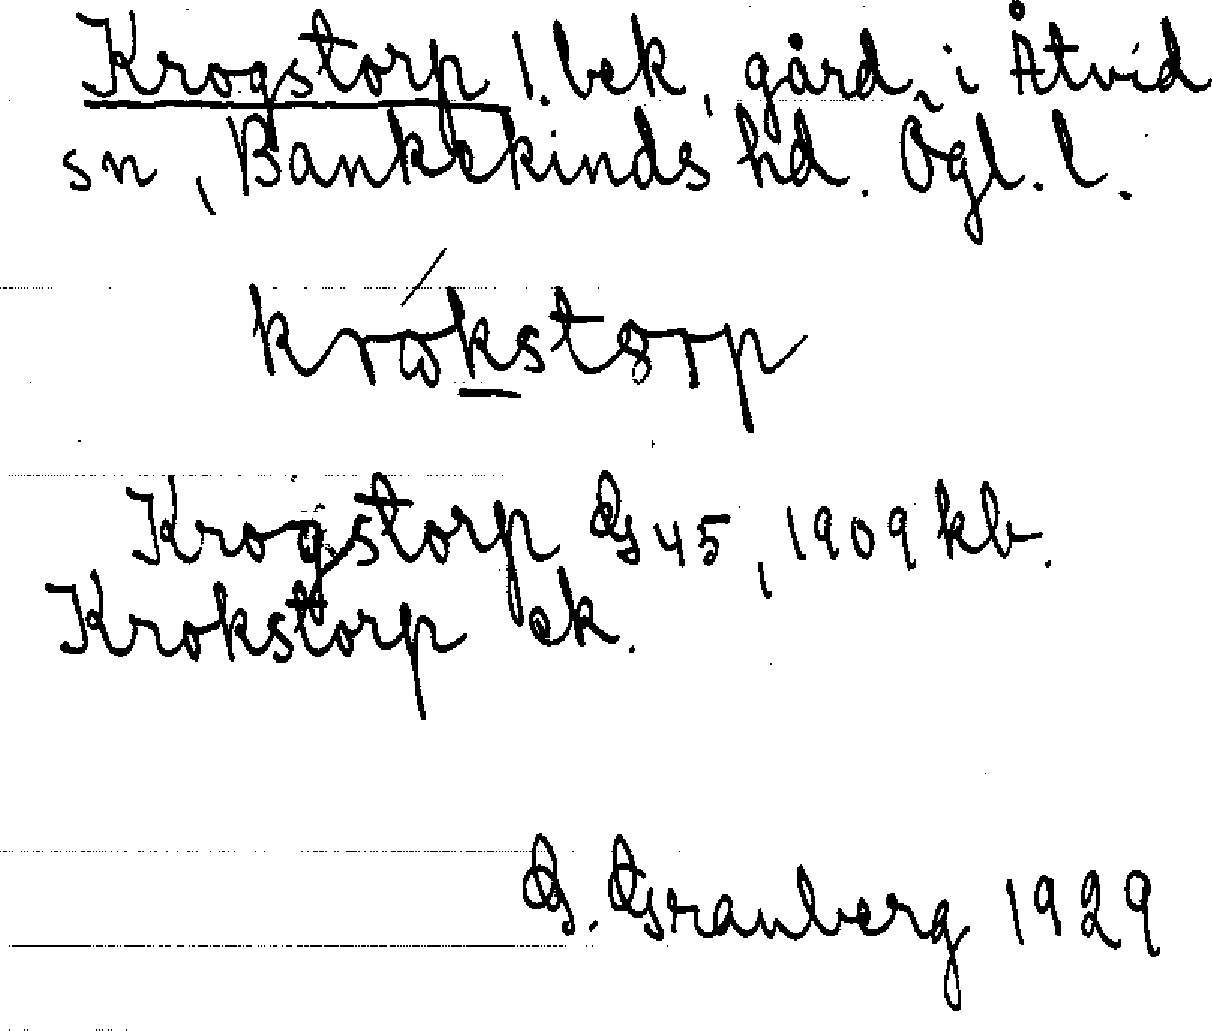 Krogstorp 1. bek, gård, i Åtvid
sn, Bankekinds hd. Ögl. l.
krókstorp
Krogstorp GS 45, 1909 kb.
Krokstorp ek.
G. Granberg 1929